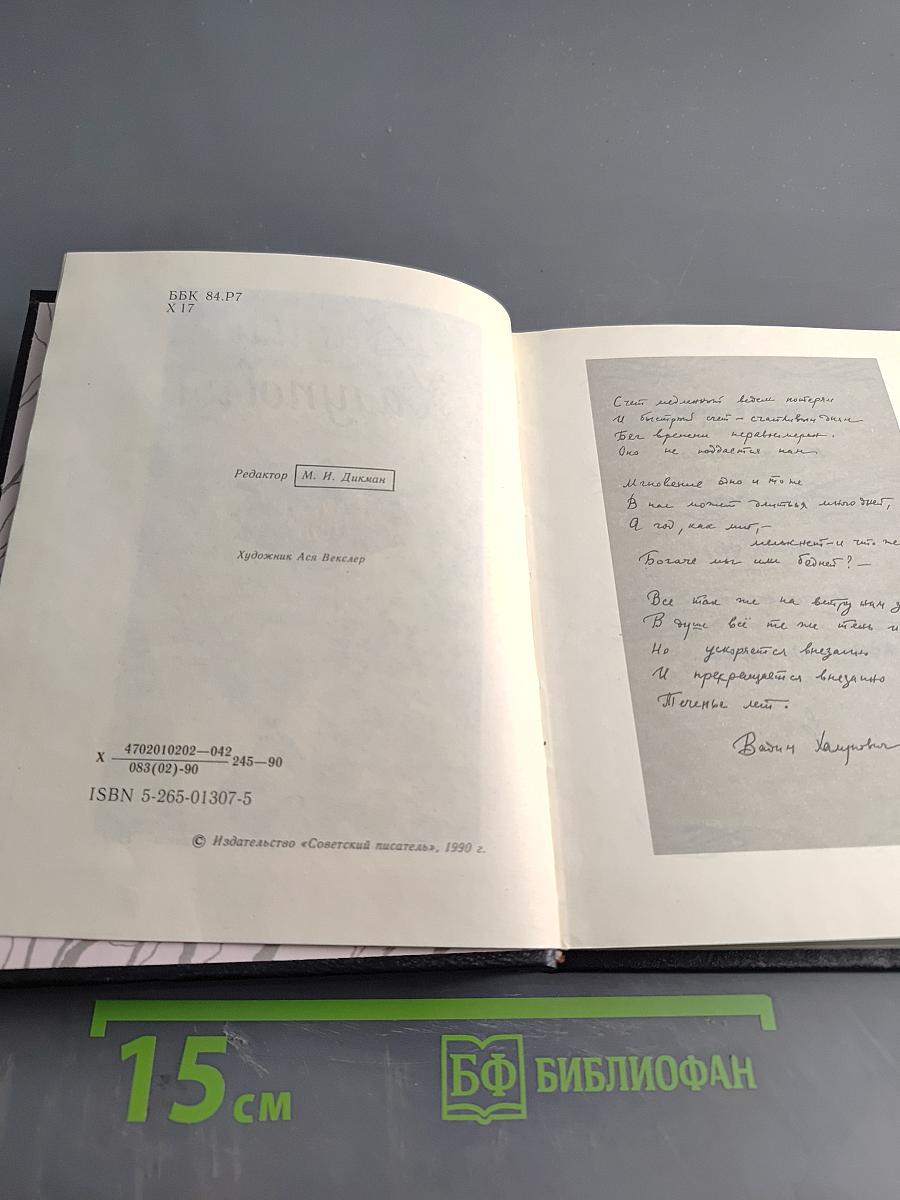 ББК 84.Р7
Х 17
Редактор М. И. Дикман
Художник Ася Векслер
Х 4702010202—042
083(02)-90 245—90
ISBN 5-265-01307-5
© Издательство «Советский писатель», 1990 г.
Счет медленный ведем потерям
И быстрый счет — счастливым дням
Бег времени неравномерен.
Оно не поддается нам
Мгновение одно и то же
В нас может длиться много дней,
А год, как миг, —
мелькнет — и что же
Богаче мы или бедней? —
Все так же на ветру нам
В душе всё те же тень и
Но ускоряется внезапно
И прекращается внезапно
Теченье лет.
Вадим Халупович
15 см
БФ БИБЛИОФАН